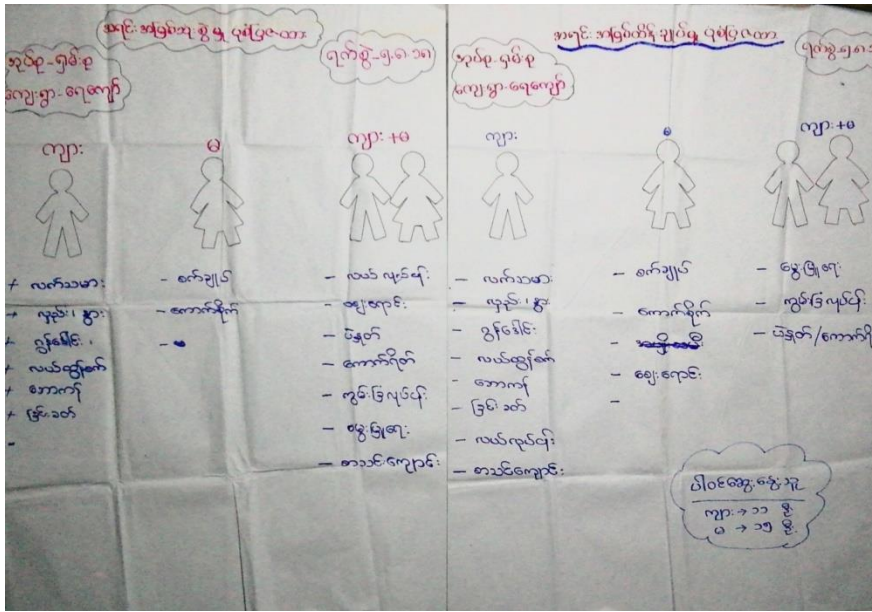 အရင်းအမြစ်သုံးစွဲမှု ပုံစံပြဇယား
အုပ်စု-ရှမ်းစု
ကျေးရွာ-ရေကျော်
ရက်စွဲ-၅.၈.၁၈
ကျား
မ
ကျား+မ
+ လက်သမား
+ လှည်း၊ နွား
+ ဂွန်ဒေါင်း၊
+ လယ်ထွန်စက်
+ ဘောကန်
+ ခြင်းခတ်
-
- စက်ချုပ်
- ကောက်စိုက်
-
- လယ်လုပ်ငန်း
- ဈေးရောင်း
- ပဲနှုတ်
- ကောက်ရိတ်
- ကျွမ်းခြံလုပ်ငန်း
- မွေးမြူရေး
- စာသင်ကျောင်း
အရင်းအမြစ်ထိန်းချုပ်မှု ပုံစံပြဇယား
အုပ်စု-ရှမ်းစု
ကျေးရွာ-ရေကျော်
ရက်စွဲ-၅.၈.
ကျား
မ
ကျား+မ
- လက်သမား
- လှည်း၊ နွား
- ဂွန်ဒေါင်း
- လယ်ထွန်စက်
- ဘောကန်
- ခြင်းခတ်
- လယ်လုပ်ငန်း
- စာသင်ကျောင်း
- စက်ချုပ်
- ကောက်စိုက်
-
- ဈေးရောင်း
-
- မွေးမြူရေး
- ကျွမ်းခြံလုပ်ငန်း
- ပဲနှုတ်/ကောက်ရိ
ပါဝင်ဆွေးနွေးသူ
ကျား → ၁၁ ဦး
မ → ၁၅ ဦး